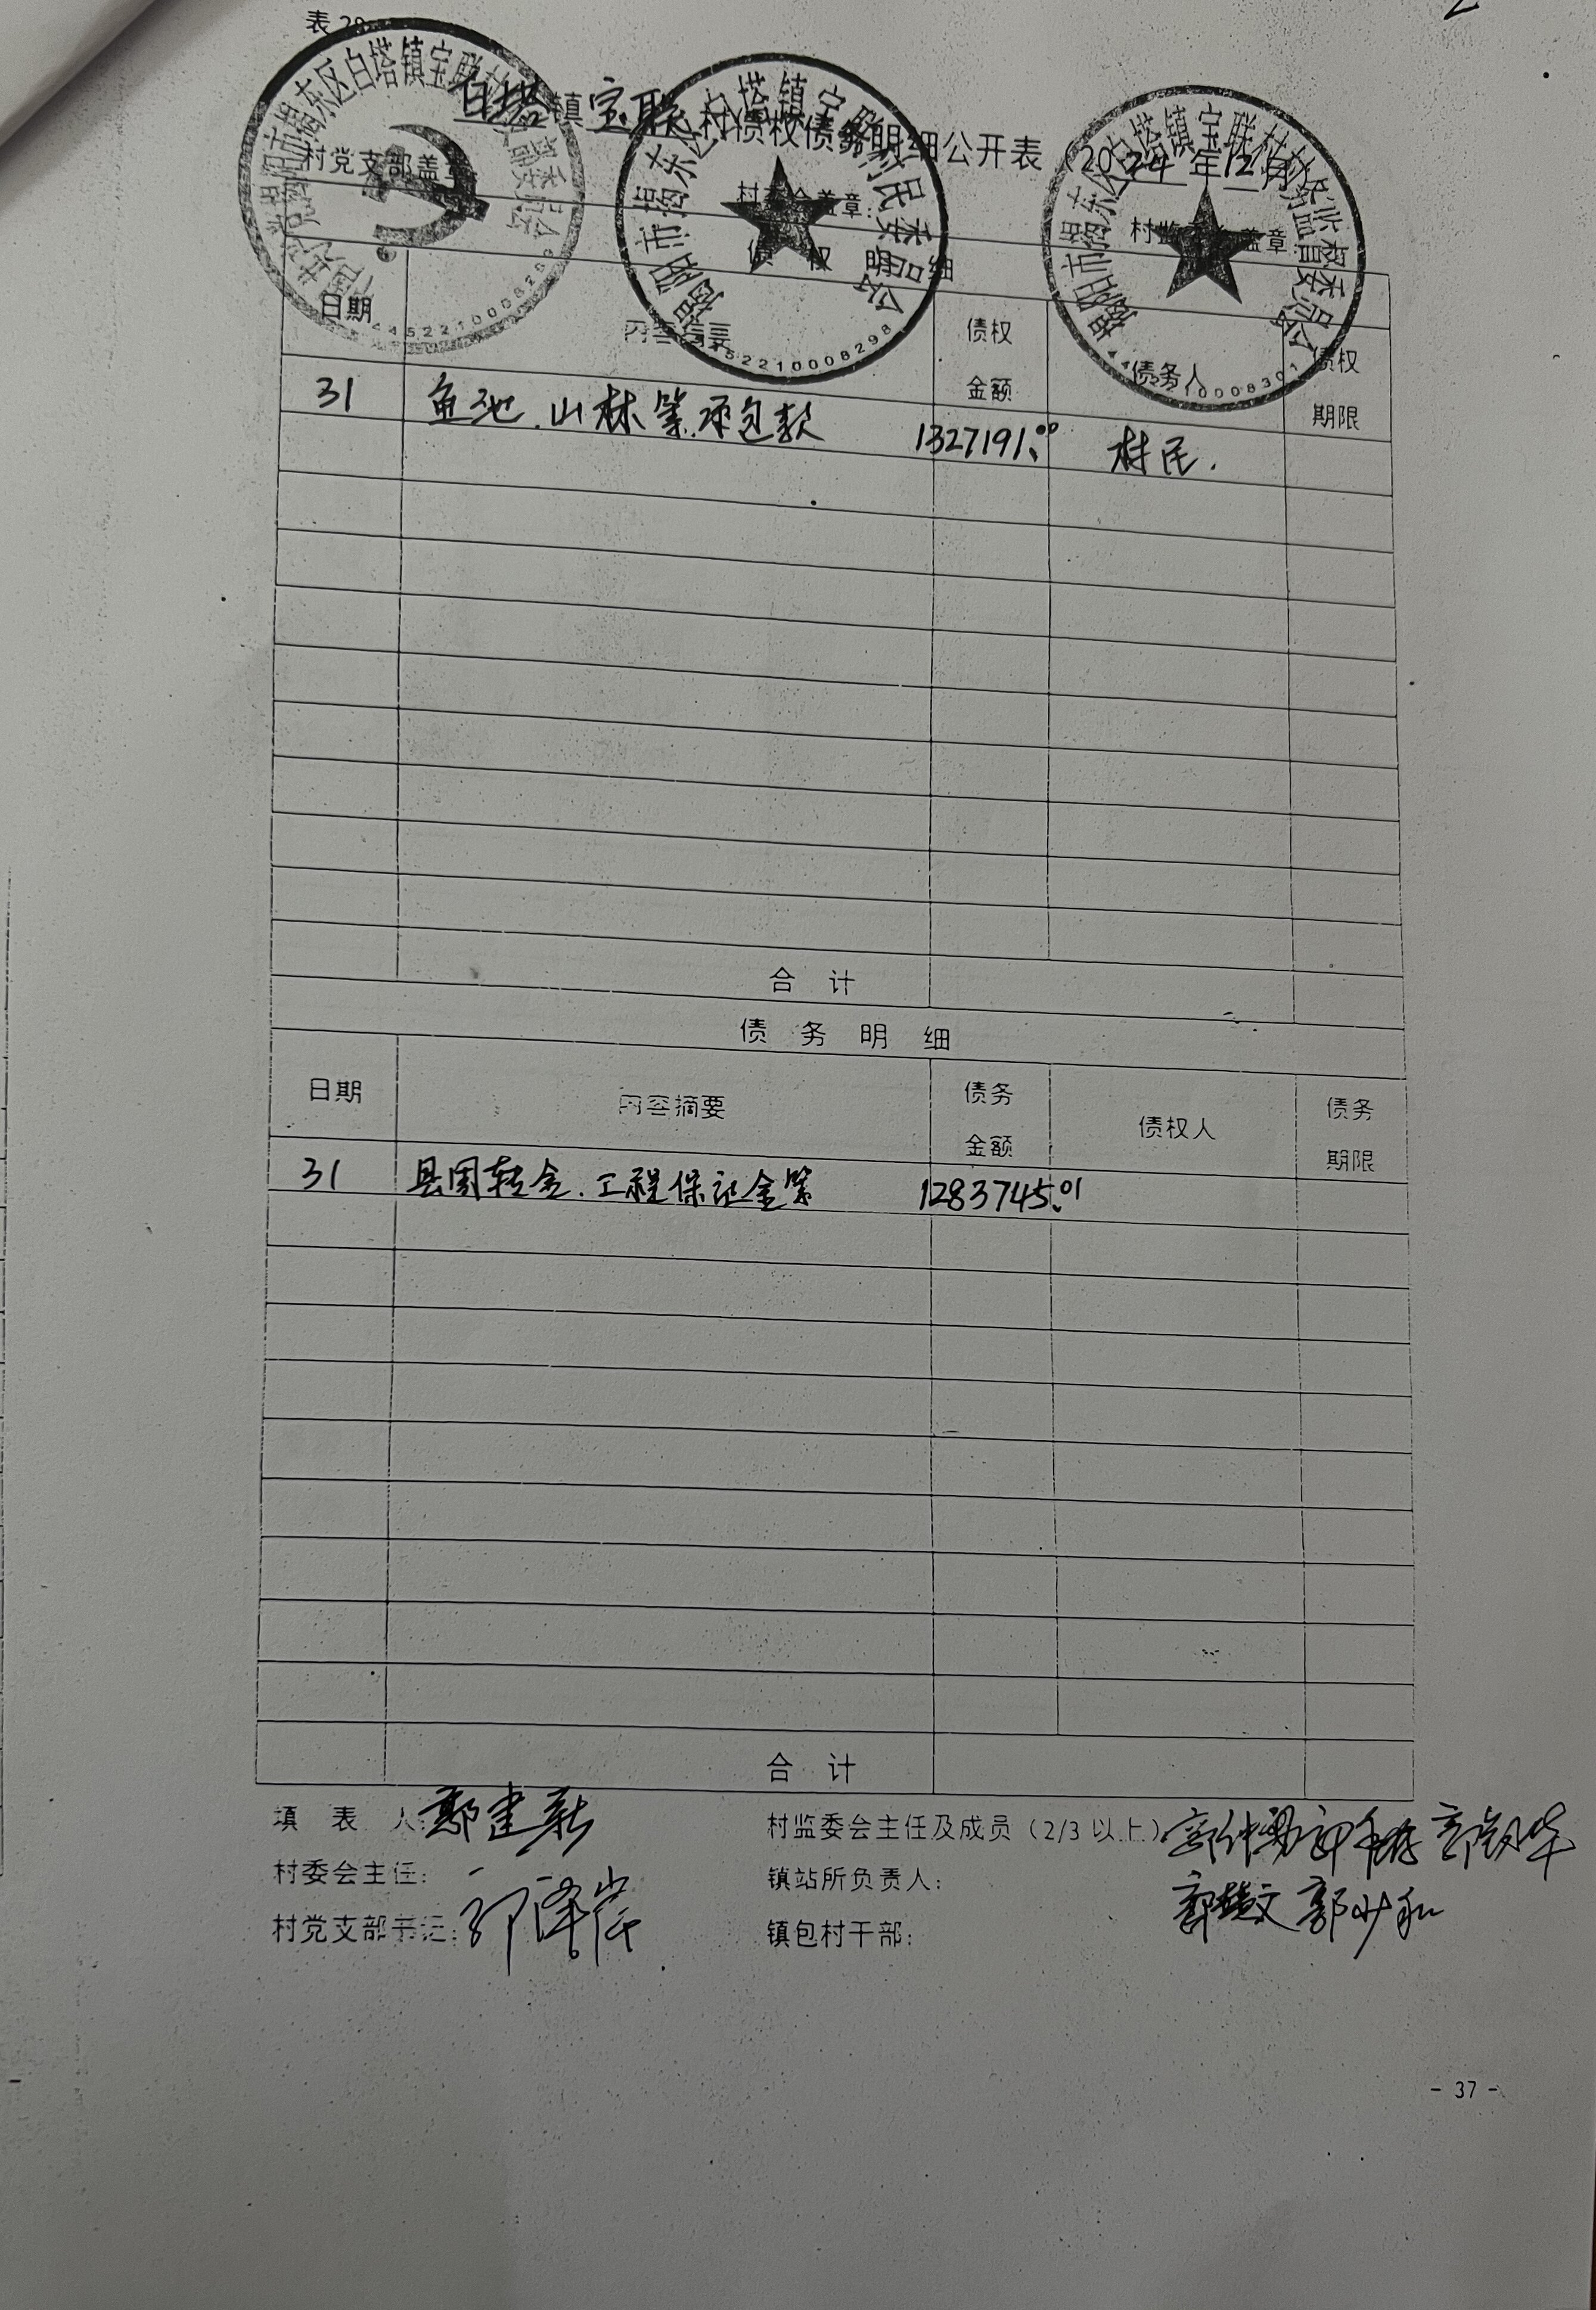 表 29
白塔镇宝联村债权债务明细公开表（2024年12月）
村党支部盖章： 村委会盖章： 村监委会盖章：
债 权 明 细
日期 内容摘要 债权金额 债务人 债权期限
31 鱼池.山林等.承包款 1327191.00 村民.
合 计
债 务 明 细
日期 内容摘要 债务金额 债权人 债务期限
31 县周转金.工程保证金等 1283745.01
合 计
填 表 人：郭建新 村监委会主任及成员（2/3 以上）
村委会主任： 镇站所负责人：
村党支部书记： 镇包村干部：
- 37 -
揭阳市揭东区白塔镇宝联村村民委员会
4452210008298
揭阳市揭东区白塔镇宝联村村务监督委员会